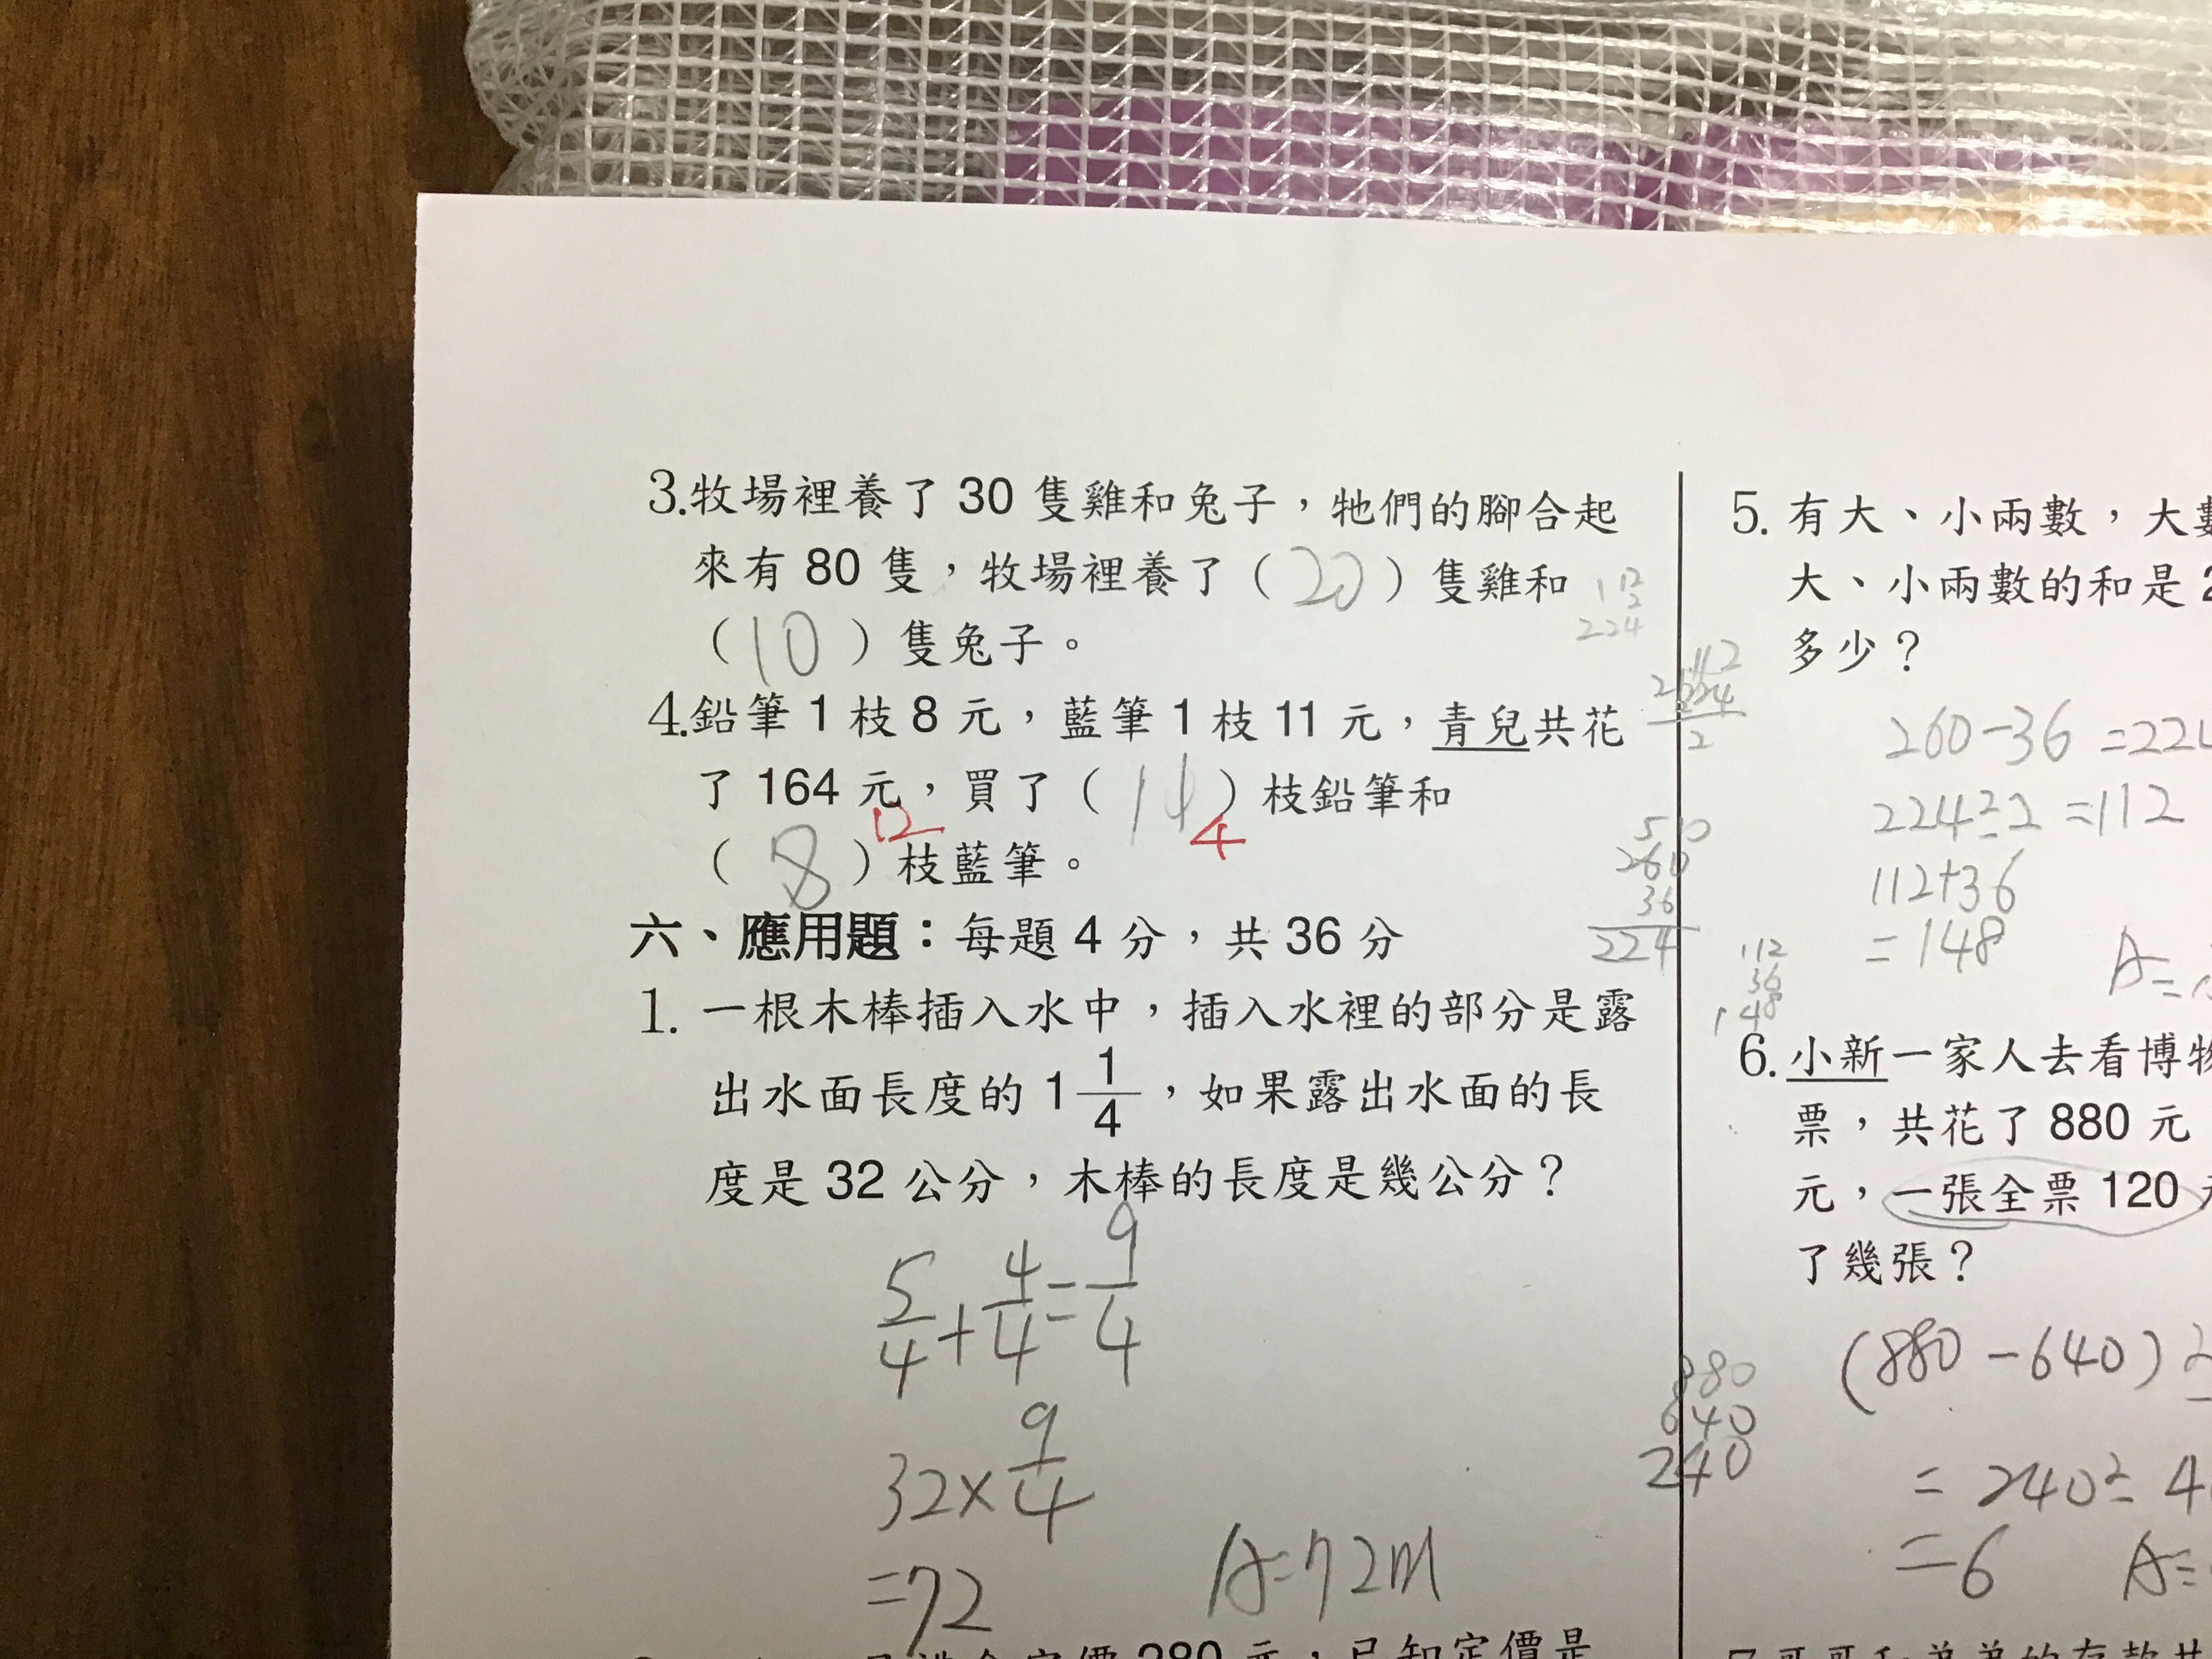 3.牧場裡養了 30 隻雞和兔子，牠們的腳合起
來有 80 隻，牧場裡養了（20）隻雞和
（10）隻兔子。
4.鉛筆 1 枝 8 元，藍筆 1 枝 11 元，青兒共花
了 164 元，買了（14）枝鉛筆和
4
12
（8）枝藍筆。
六、應用題：每題 4 分，共 36 分
1. 一根木棒插入水中，插入水裡的部分是露
出水面長度的 1 1/4，如果露出水面的長
度是 32 公分，木棒的長度是幾公分？
5/4+4/4=9/4
32×9/4
=72
A=72m
280 元，已知定價是
112
2
224
112
2
510
260
36
224
112
36
148
880
640
240
5. 有大、小兩數，大數
大、小兩數的和是 2
多少？
260-36=224
224÷2=112
112+36
=148
A=
6. 小新一家人去看博物
票，共花了 880 元
元，一張全票 120 元
了幾張？
(880-640)÷
=240÷4
=6
A=
7.哥哥和弟弟的存款共